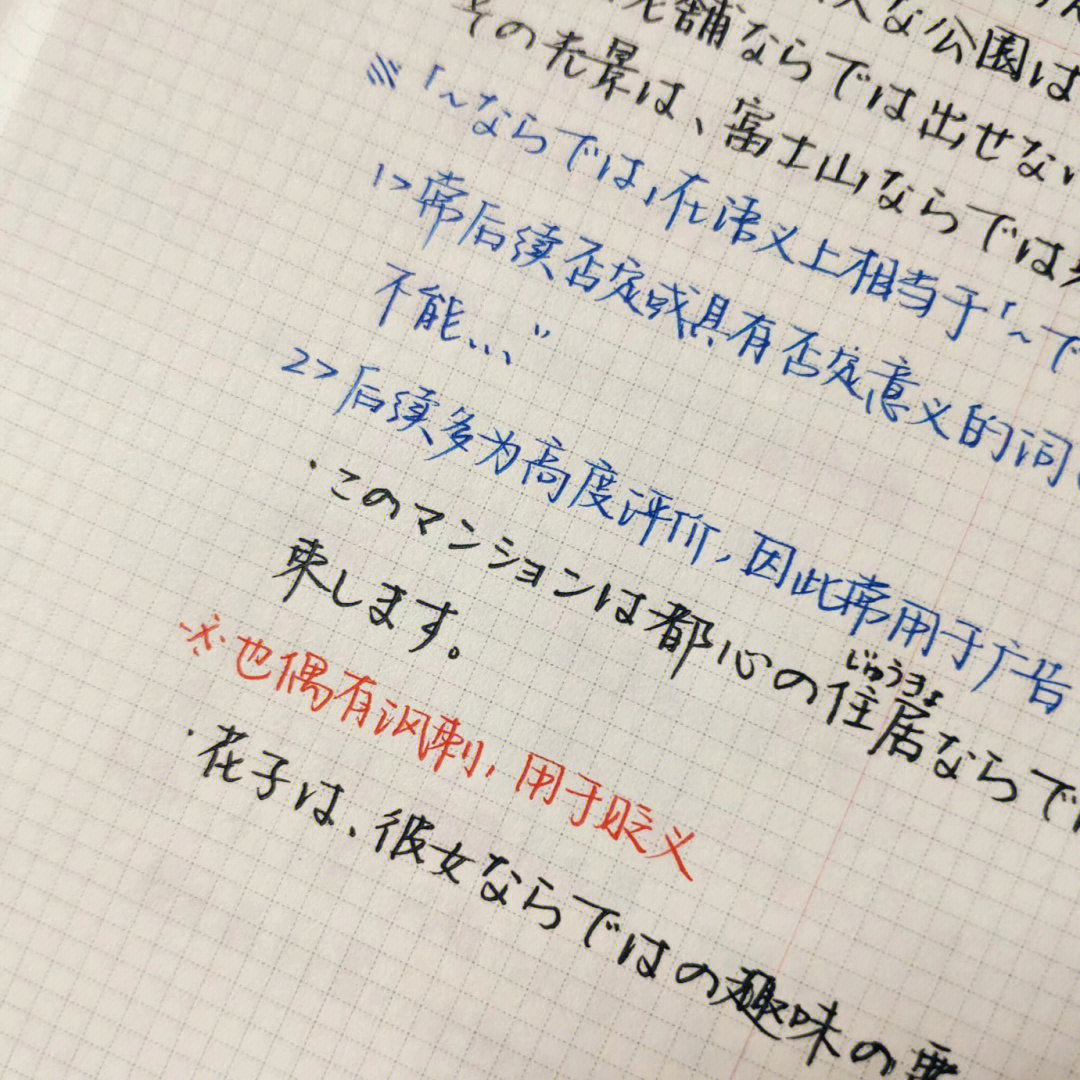 な公園は
老舗ならでは出せない
その光景は、富士山ならでは
※「~ならでは」在语义上相当于「~で
1>常后续否定或具有否定意义的词
不能...”
2>后续多为高度评价,因此常用于广告
・このマンションは都心の住居ならで
じゅうきょ
束します。
※也偶有讽刺,用于贬义
・花子は、彼女ならではの趣味の悪